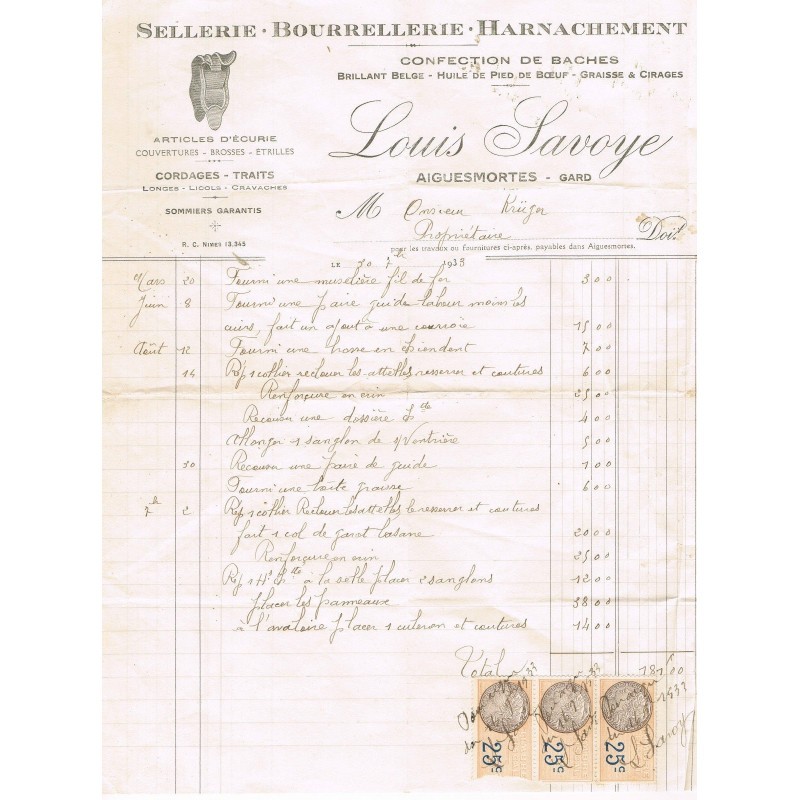 SELLERIE · BOURRELLERIE · HARNACHEMENT
CONFECTION DE BACHES
BRILLANT BELGE - HUILE DE PIED DE BŒUF - GRAISSE & CIRAGES
ARTICLES D'ÉCURIE
COUVERTURES - BROSSES - ÉTRILLES
CORDAGES - TRAITS
LONGES - LICOLS - CRAVACHES
SOMMIERS GARANTIS
R. C. NIMES 13.345
Louis Savoye
AIGUESMORTES - GARD
M Onsieur Krüger
Propriétaire Doit
pour les travaux ou fournitures ci-après, payables dans Aiguesmortes.
LE 30 7b 1933
Mars 20 Fourni une muselière fil de fer 3 00
Juin 8 Fourni une paire guide labour moins les
cuirs, fait un ajout à une courroie 15 00
Août 12 Fourni une brosse en chiendent 7 00
14 Rep 1 collier reclouer les attelles resserrer et coutures 6 00
Renforçure en crin 25 00
Recousu une dossière 4 00
1 sanglon de s/Ventrière 5 00
30 Recousu une paire de guide 1 00
Fourni une boite graisse 6 00
7b 2 Rep 1 collier Reclouer les attelles le resserrer et coutures
fait 1 col de garot basane 20 00
Renforçure en crin 25 00
Rep à la selle placer 2 sanglons 12 00
placer les panneaux 38 00
à l'avaloire placer 1 culeron et coutures 14 00
Total 181 00
1933
1933
1933
L Savoye
25c 25c 25c